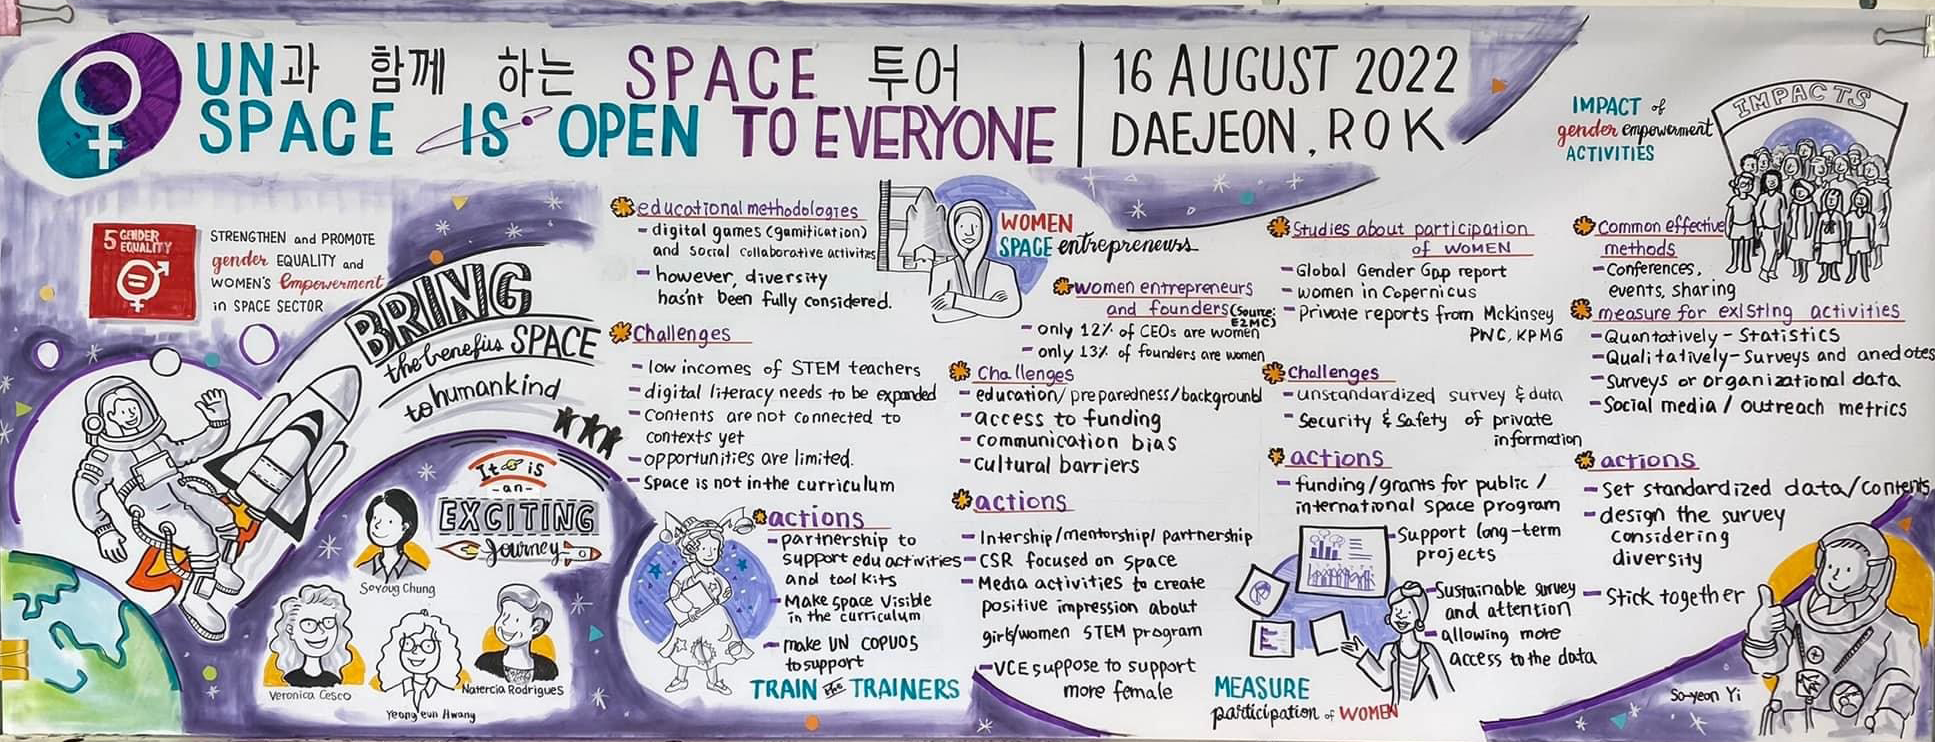 UN과 함께 하는 SPACE 투어
SPACE IS OPEN TO EVERYONE
16 AUGUST 2022
DAEJEON, ROK
5 GENDER
EQUALITY
STRENGTHEN and PROMOTE
gender EQUALITY and
WOMEN'S Empowerment
in SPACE SECTOR
BRING
the benefits SPACE
to humankind
It is
-an-
EXCITING
Journey
Soyoug Chung
Veronica Cesco
Yeong'eun Hwang
Natercia Rodrigues
educational methodologies
- digital games (gamification)
and social collaborative activites
- however, diversity
hasn't been fully considered.
Challenges
- low incomes of STEM teachers
- digital literacy needs to be expanded
- Contents are not connected to
contexts yet
- opportunities are limited.
- Space is not in the curriculum
actions
- partnership to
support edu activities
and tool kits
- Make space visible
in the curriculum
- make UN COPUOS
to support
TRAIN the TRAINERS
WOMEN
SPACE entrepreneurs
women entrepreneurs
and founders (source:
E2MC)
- only 12% of CEOs are women
- only 13% of founders are women
Challenges
- education/preparedness/backgroundl
- access to funding
- communication bias
- cultural barriers
actions
- Intership/mentorship/partnership
- CSR focused on space
- Media activities to create
positive impression about
girls/women STEM program
- VCE suppose to support
more female
Studies about participation
of WOMEN
- Global Gender Gap report
- women in Copernicus
- Private reports from Mckinsey
PWC, KPMG
Challenges
- unstandardized survey & data
- Security & Safety of private
information
actions
- funding/grants for public /
international space program
- Support long-term
projects
- Sustainable survey
and attention
- allowing more
access to the data
MEASURE
participation of WOMEN
IMPACT of
gender empowerment
ACTIVITIES
IMPACTS
Common effective
methods
- Conferences,
events, sharing
measure for existing activities
- Quantatively - Statistics
- Qualitatively - Surveys and anedotes
- Surveys or organizational data
- Social media / outreach metrics
actions
- Set standardized data/contents
- design the survey
considering
diversity
- Stick together
So-yeon Yi